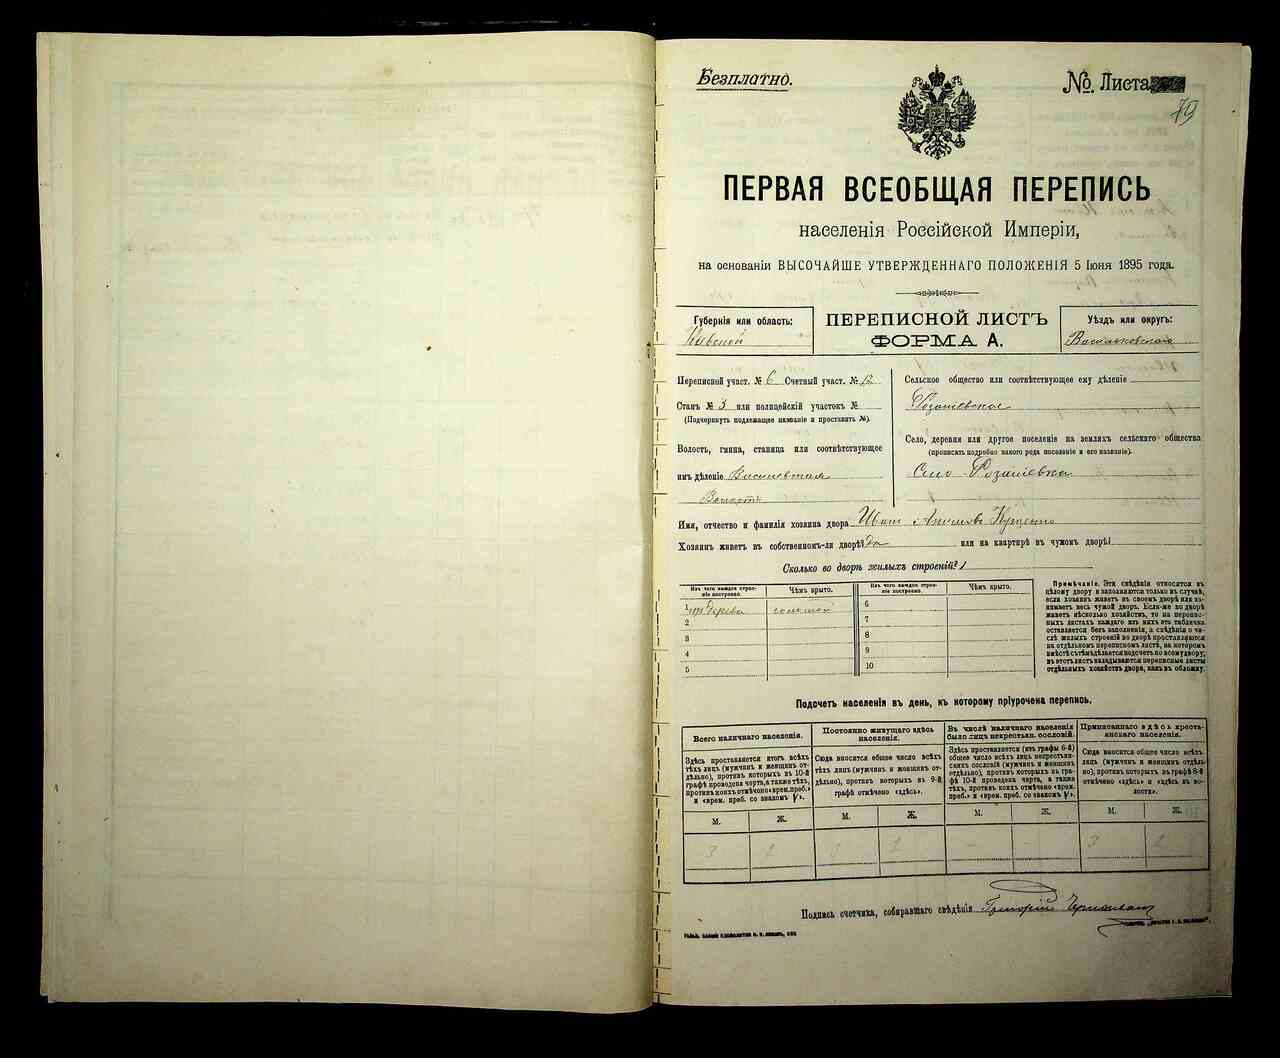 Безплатно.
№. Листа
79
ПЕРВАЯ ВСЕОБЩАЯ ПЕРЕПИСЬ
населенія Россійской Имперіи,
на основаніи ВЫСОЧАЙШЕ УТВЕРЖДЕННАГО ПОЛОЖЕНІЯ 5 Іюня 1895 года.
Губернія или область:
Кіевской
ПЕРЕПИСНОЙ ЛИСТЪ
ФОРМА А.
Уѣздъ или округъ:
Васильковскаго
Переписной участ. № 6 Счетный участ. № 12
Станъ № 3 или полицейскій участокъ №
(Подчеркнуть подлежащее названіе и проставить №).
Волость, гмина, станица или соотвѣтствующее
имъ дѣленіе
Волость
Сельское общество или соотвѣтствующее ему дѣленіе
Село, деревня или другое поселеніе на земляхъ сельскаго общества
(прописать подробно какого рода поселеніе и его названіе).
Село
Имя, отчество и фамилія хозяина двора Иванъ
Хозяинъ живетъ въ собственномъ-ли дворѣ? да или на квартирѣ въ чужомъ дворѣ?
Сколько во дворѣ жилыхъ строеній? 1
Изъ чего каждое строеніе построено.
Чѣмъ крыто.
Изъ чего каждое строеніе построено.
Чѣмъ крыто.
1 изъ дерева соломой
2
3
4
5
6
7
8
9
10
Примѣчаніе. Эти свѣдѣнія относятся къ
цѣлому двору и заполняются только въ случаѣ,
если хозяинъ живетъ въ своемъ дворѣ или занимаетъ весь чужой дворъ. Если-же во дворѣ
живетъ нѣсколько хозяйствъ, то на переписныхъ листахъ каждаго изъ нихъ эта табличка
оставляется безъ заполненія, а свѣдѣнія о числѣ жилыхъ строеній во дворѣ проставляются
на отдѣльномъ переписномъ листѣ, на которомъ
вмѣстѣ съ тѣмъ дѣлается подсчетъ по всему двору;
въ этотъ листъ вкладываются переписные листы
отдѣльныхъ хозяйствъ двора, какъ въ обложку.
Подсчетъ населенія въ день, къ которому пріурочена перепись.
Всего наличнаго населенія.
Постоянно живущаго здѣсь
населенія.
Въ числѣ наличнаго населенія
было лицъ некрестьян. сословій.
Приписаннаго здѣсь крестьянскаго населенія.
Здѣсь проставляется итогъ всѣхъ
тѣхъ лицъ (мужчинъ и женщинъ отдѣльно), противъ которыхъ въ 10-й
графѣ проведена черта, а также тѣхъ,
противъ коихъ отмѣчено «врем. преб.»
и «врем. преб. со знакомъ V».
Сюда вносится общее число всѣхъ
тѣхъ лицъ (мужчинъ и женщинъ отдѣльно), противъ которыхъ въ 9-й
графѣ отмѣчено «здѣсь».
Здѣсь проставляется (изъ графы 6-й)
общее число всѣхъ лицъ некрестьянскихъ сословій (мужчинъ и женщинъ
отдѣльно), противъ которыхъ въ графѣ 10-й проведена черта, а также
тѣхъ, противъ коихъ отмѣчено «врем.
преб.» и «врем. преб. со знакомъ V».
Сюда вносится общее число всѣхъ
лицъ (мужчинъ и женщинъ отдѣльно), противъ которыхъ въ графѣ 8-й
отмѣчено «здѣсь» и «здѣсь въ волости».
М. Ж. М. Ж. М. Ж. М. Ж.
3 2 3 2 - - 3 2
Подпись счетчика, собиравшаго свѣдѣнія Григорій